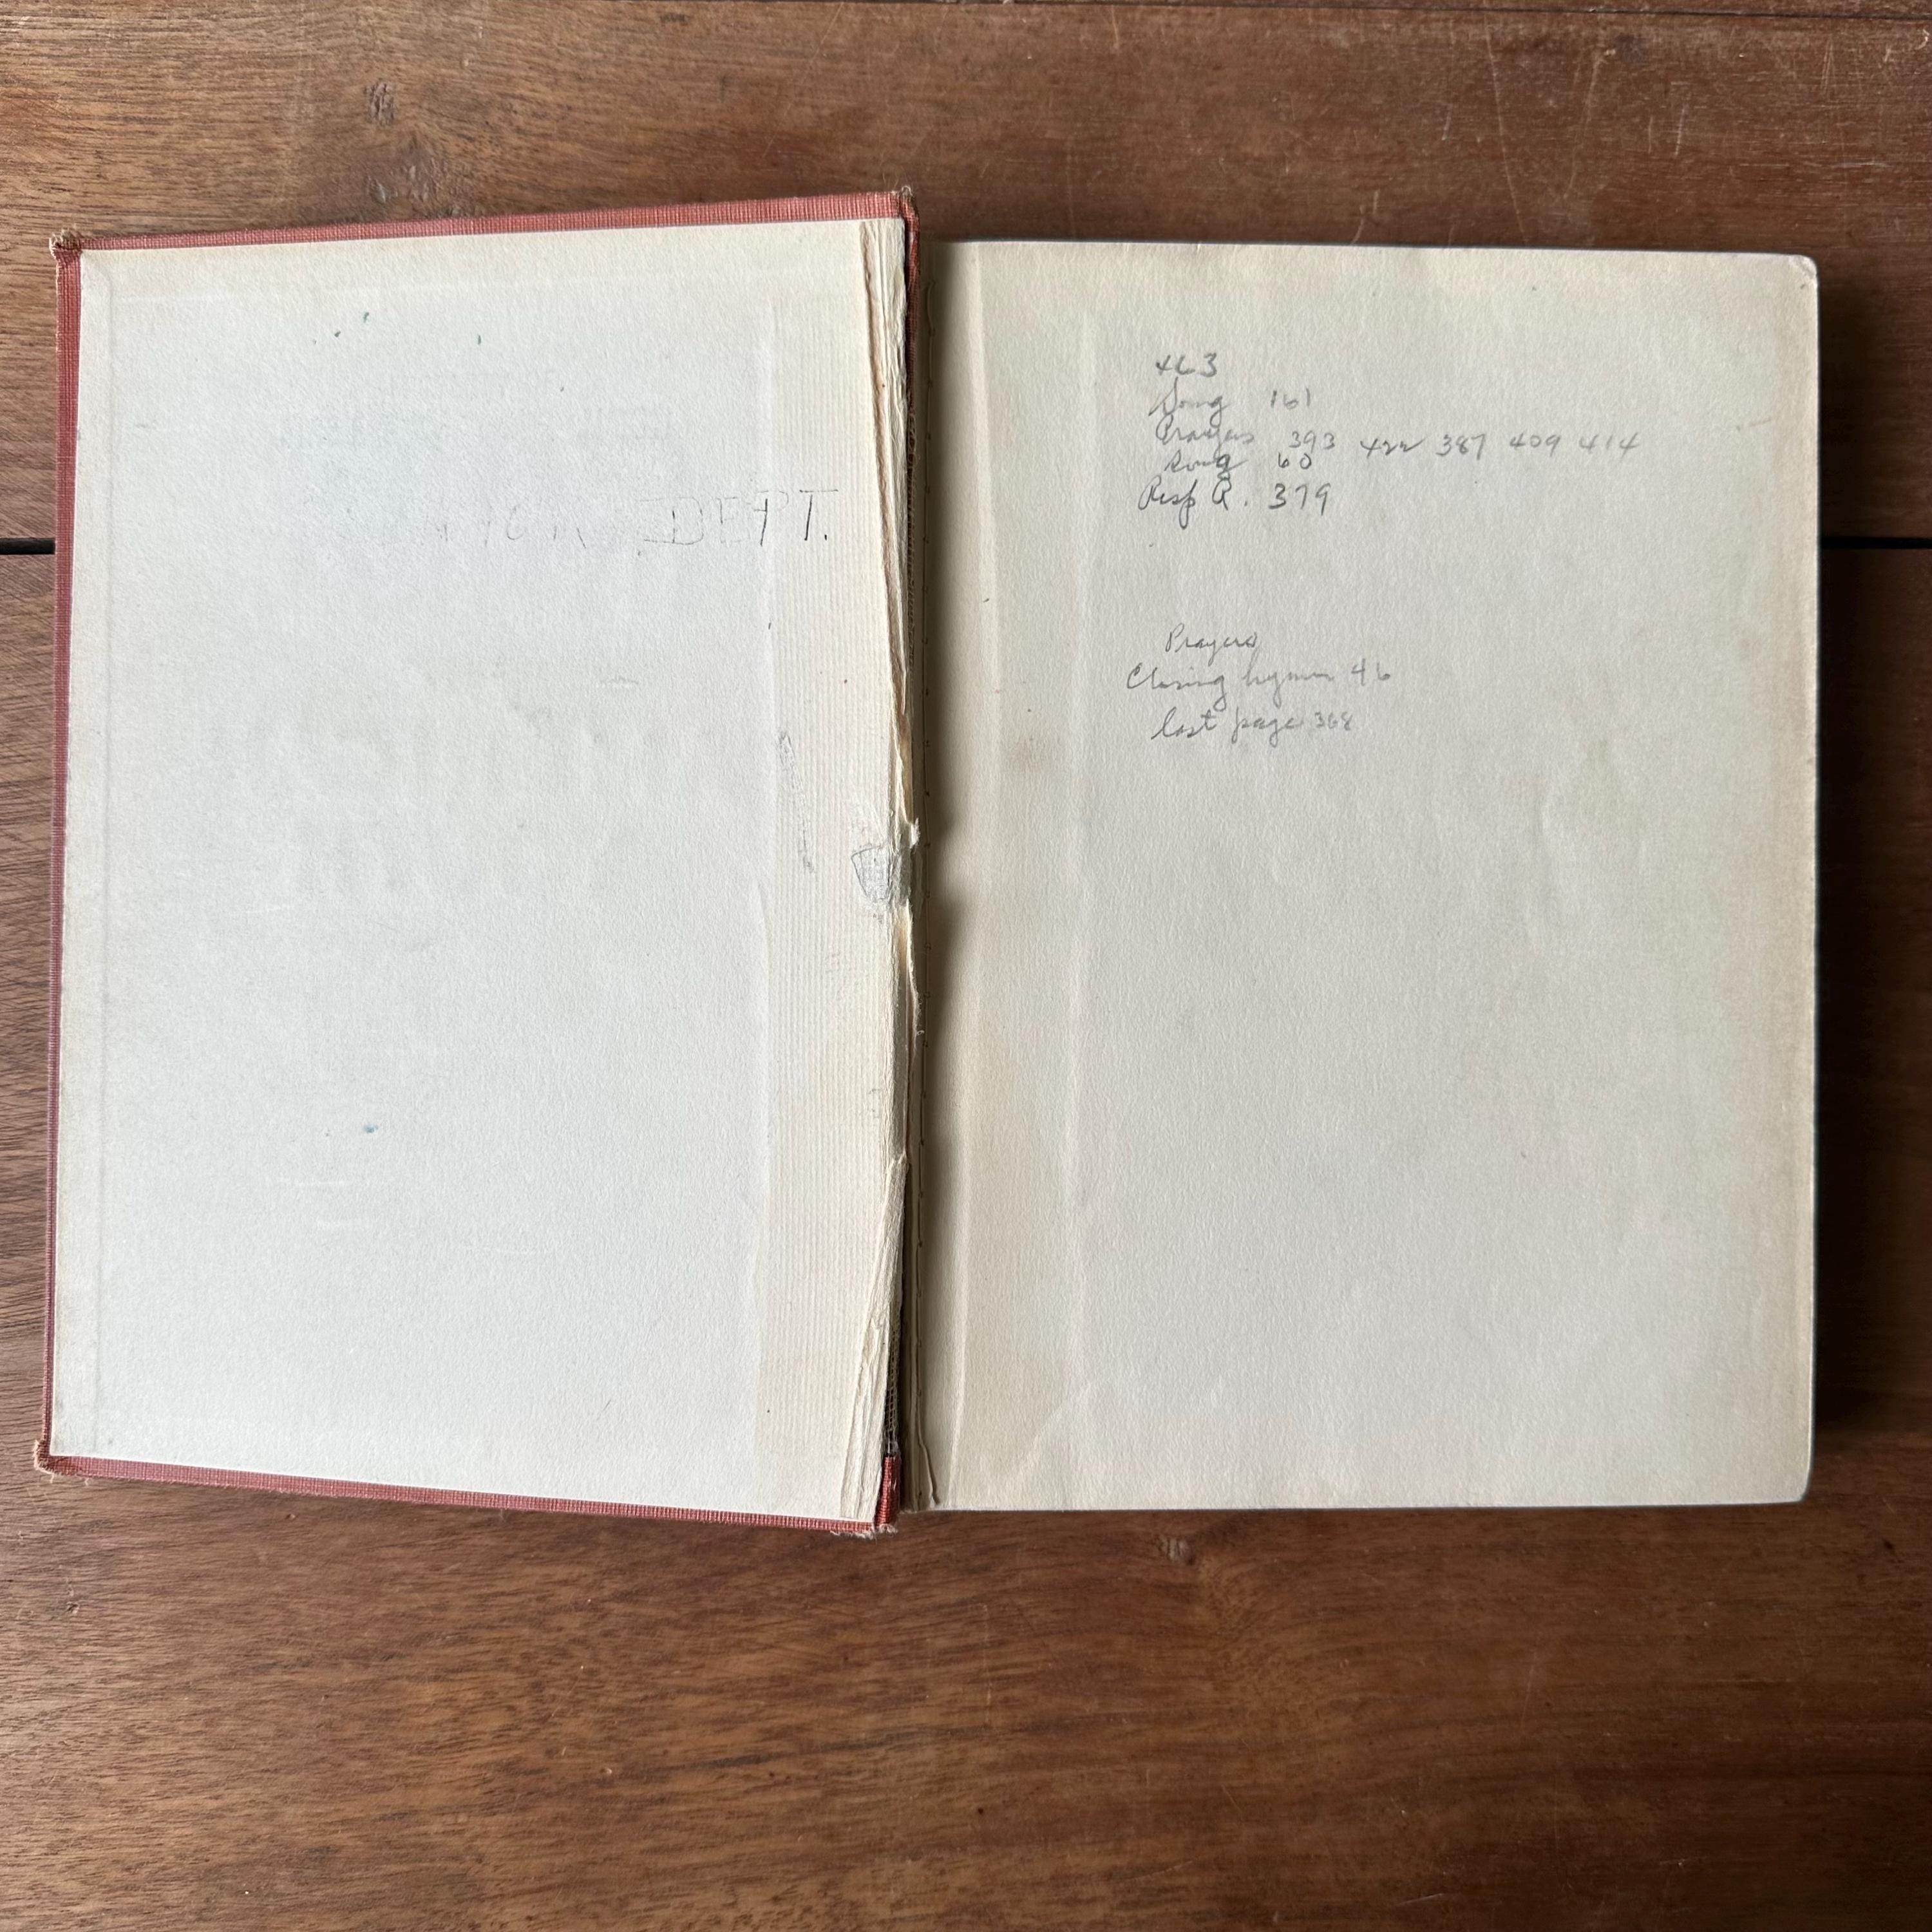 DEPT.
463
Song 161
Prayers 393 422 387 409 414
Song 60
Resp R. 379
Prayers
Closing hymn 46
last page 368